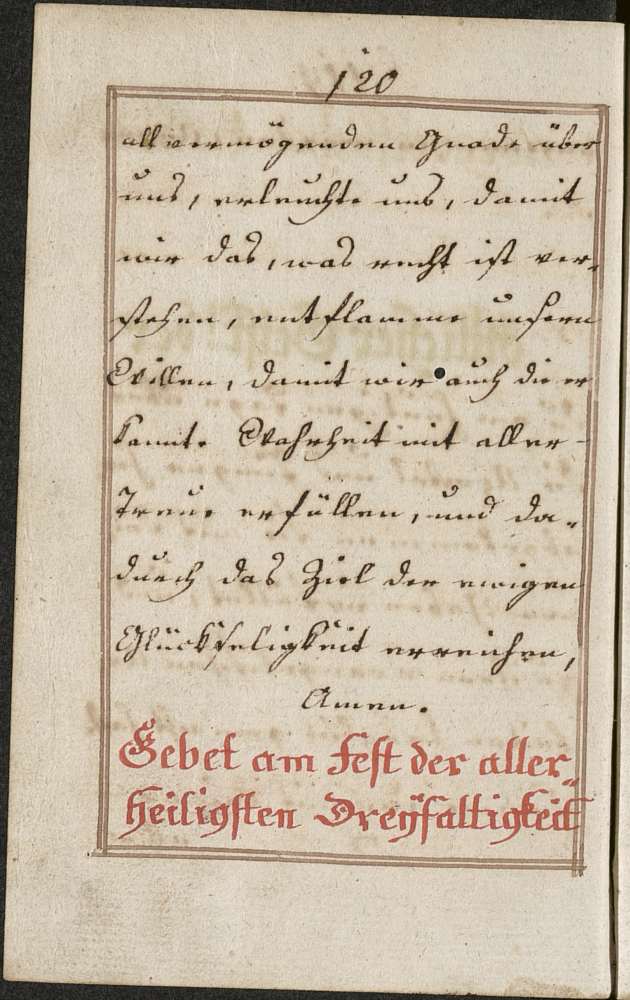 120
allvermögenden Gnade über
uns, erleuchte uns, damit
wir das, was recht ist ver-
stehen, entflamme unsern
Willen, damit wir auch die er
kannte Wahrheit mit aller-
Treue erfüllen, und da-
durch das Ziel der ewigen
Glückseligkeit erreichen,
Amen.
Gebet am Fest der aller-
heiligsten Dreyfaltigkeit